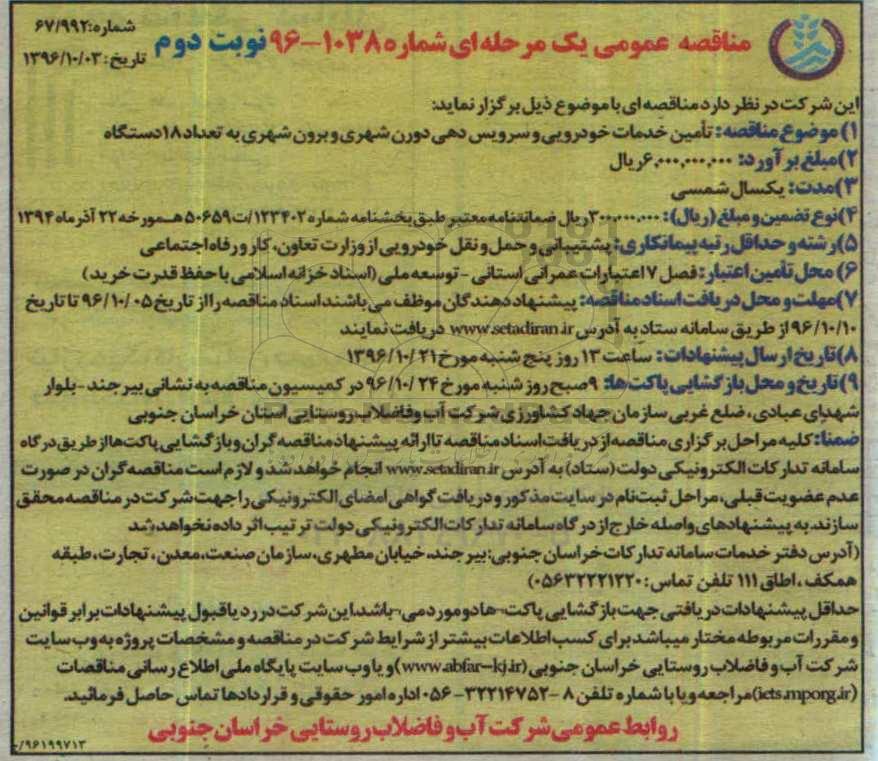 شماره: ۶۷/۹۹۲
تاریخ: ۱۳۹۶/۱۰/۰۳
مناقصه عمومی یک مرحله ای شماره ۱۰۳۸-۹۶ نوبت دوم
این شرکت در نظر دارد مناقصه ای با موضوع ذیل برگزار نماید:
۱) موضوع مناقصه: تأمین خدمات خودرویی و سرویس دهی دورن شهری و برون شهری به تعداد ۱۸ دستگاه
۲) مبلغ برآورد: ۶,۰۰۰,۰۰۰,۰۰۰ ریال
۳) مدت: یکسال شمسی
۴) نوع تضمین و مبلغ (ریال): ۳۰۰,۰۰۰,۰۰۰ ریال ضمانتنامه معتبر طبق بخشنامه شماره ۱۲۳۴۰۲/ت۵۰۶۵۹هـ مورخه ۲۲ آذر ماه ۱۳۹۴
۵) رشته و حداقل رتبه پیمانکاری: پشتیبانی و حمل و نقل خودرویی از وزارت تعاون، کار و رفاه اجتماعی
۶) محل تأمین اعتبار: فصل ۷ اعتبارات عمرانی استانی - توسعه ملی (اسناد خزانه اسلامی با حفظ قدرت خرید)
۷) مهلت و محل دریافت اسناد مناقصه: پیشنهاد دهندگان موظف می باشند اسناد مناقصه را از تاریخ ۹۶/۱۰/۰۵ تا تاریخ
۹۶/۱۰/۱۰ از طریق سامانه ستاد به آدرس www.setadiran.ir دریافت نمایند
۸) تاریخ ارسال پیشنهادات: ساعت ۱۳ روز پنج شنبه مورخ ۱۳۹۶/۱۰/۲۱
۹) تاریخ و محل بازگشایی پاکت ها: ۹ صبح روز شنبه مورخ ۹۶/۱۰/۲۴ در کمیسیون مناقصه به نشانی بیرجند - بلوار
شهدای عبادی، ضلع غربی سازمان جهاد کشاورزی شرکت آب و فاضلاب روستایی استان خراسان جنوبی
ضمنا: کلیه مراحل برگزاری مناقصه از دریافت اسناد مناقصه تا ارائه پیشنهاد مناقصه گران و بازگشایی پاکت ها از طریق درگاه
سامانه تدارکات الکترونیکی دولت (ستاد) به آدرس www.setadiran.ir انجام خواهد شد و لازم است مناقصه گران در صورت
عدم عضویت قبلی، مراحل ثبت نام در سایت مذکور و دریافت گواهی امضای الکترونیکی را جهت شرکت در مناقصه محقق
سازند. به پیشنهادهای واصله خارج از درگاه سامانه تدارکات الکترونیکی دولت ترتیب اثر داده نخواهد شد
(آدرس دفتر خدمات سامانه تدارکات خراسان جنوبی: بیرجند، خیابان مطهری، سازمان صنعت، معدن، تجارت، طبقه
همکف، اطاق ۱۱۱ تلفن تماس: ۰۵۶۳۲۲۲۱۲۲۰)
حداقل پیشنهادات دریافتی جهت بازگشایی پاکت¬ها دو مورد می¬باشد. این شرکت در رد یا قبول پیشنهادات برابر قوانین
و مقررات مربوطه مختار میباشد برای کسب اطلاعات بیشتر از شرایط شرکت در مناقصه و مشخصات پروژه به وب سایت
شرکت آب و فاضلاب روستایی خراسان جنوبی (www.abfar-kj.ir) و یا وب سایت پایگاه ملی اطلاع رسانی مناقصات
(iets.mporg.ir) مراجعه و یا با شماره تلفن ۸ - ۳۲۲۱۴۷۵۲-۰۵۶ اداره امور حقوقی و قراردادها تماس حاصل فرمائید.
روابط عمومی شرکت آب و فاضلاب روستایی خراسان جنوبی
۹۶۱۹۹۷۱۳/